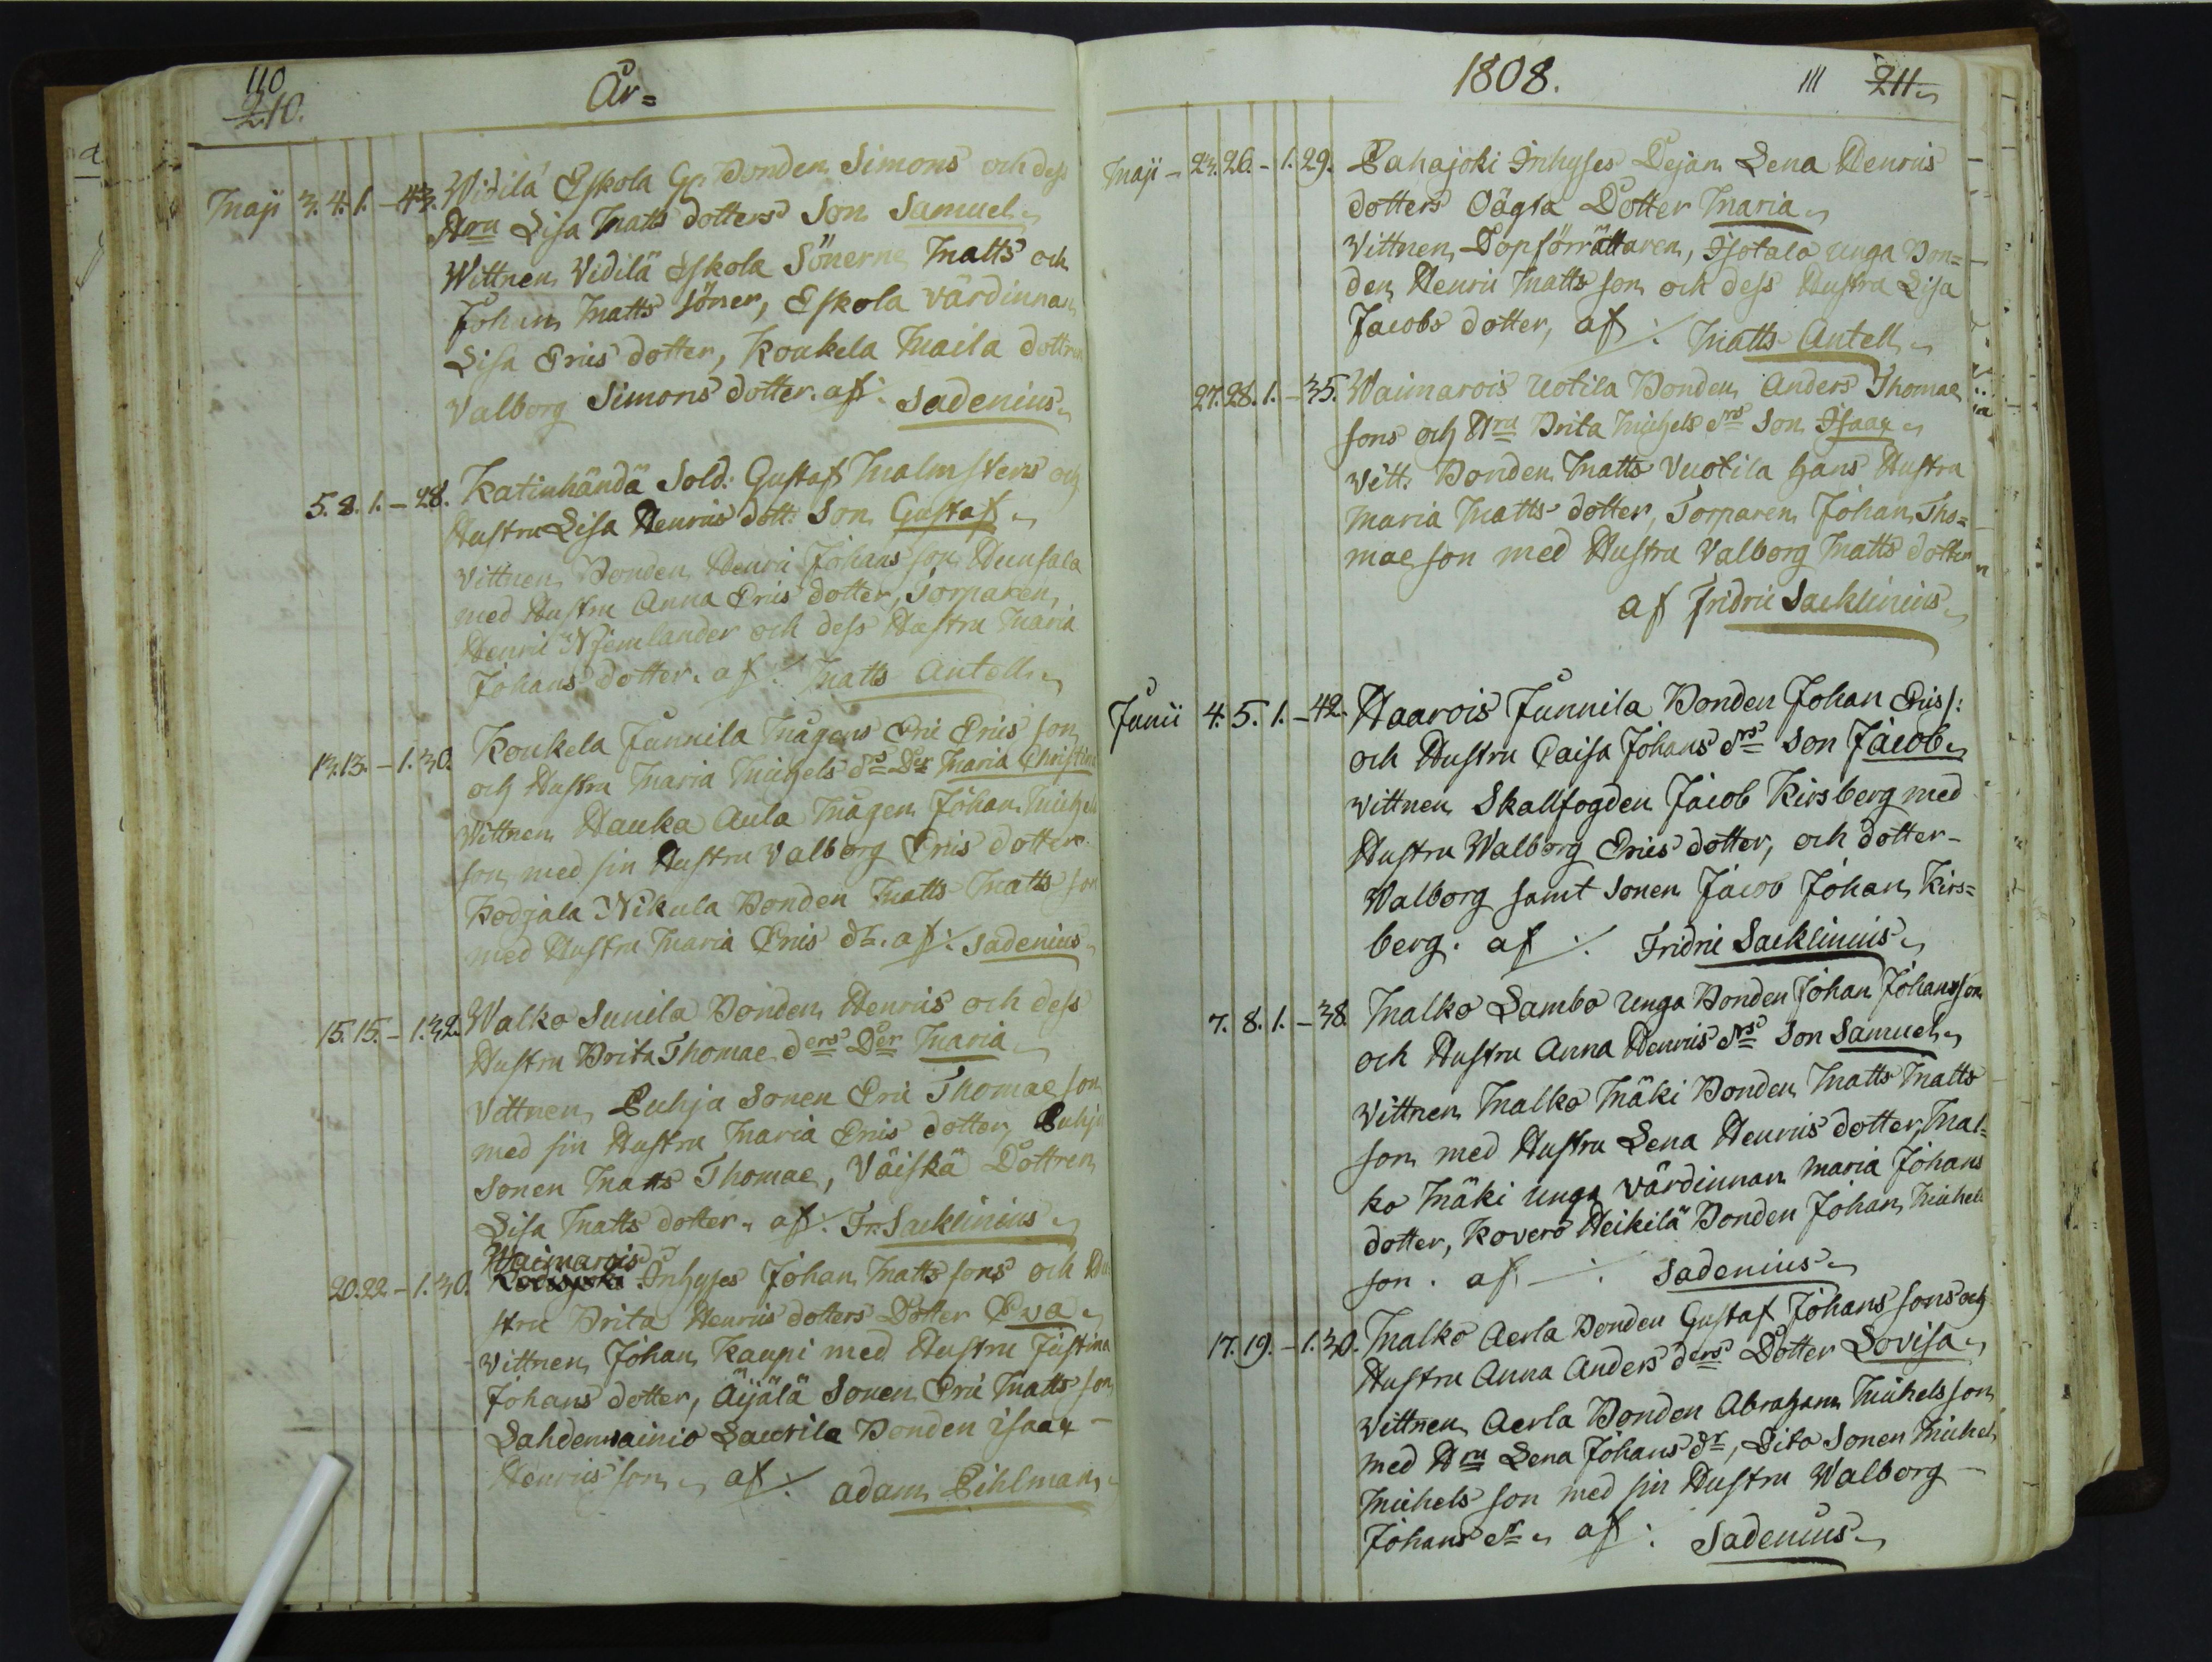 110
210.
År=
Maji 3. 4. 1. - 43. Widilä Eskola Gr Bonden Simons och dess
Hru Lisa Matts dotters Son Samuel
Wittnen Vidilä Eskola Sönerne Matts och
Johan Matts söner, Eskola värdinnan
Lisa Erics dotter, Koukela Maila dottren
Valborg Simons dotter. af ·/. Sadenius
5. 8. 1. - 28. Katinhändä Sold: Gustaf Malmstens och
Hustru Lisa Henrics dott: Son Gustaf
Vittnen Bonden Henric Johans son Hunsala
med Hustru Anna Erics dotter, Torparen
Henric Njemlander och dess Hustru Maria
Johans dotter. af ·/. Matts Antell
13. 13. - 1. 30. Koukela Junnila Mågens Eric Erics son
och Hustru Maria Michels drs Der Maria Christina
Wittnen Hauka Aula Mågen Johan Michels
son med sin Hustru Valborg Erics dotter
Kodjala Nikula Bonden Matts Matts son
med Hustru Maria Erics dr. af ·/. Sadenius
15. 15. - 1. 32. Walko Sunila Bonden Henrics och dess
Hustru Brita Thomae ders Der Maria
Vittnen Puhja Sonen Eric Thomae son
med sin Hustru Maria Erics dotter, Puhja
Sonen Matts Thomae, Väiskä Dottren
Lisa Matts dotter. af ·/. Fr. Sacklinius
Waimarois
20. 22. - 1. 30. Inhyses Johan Matts sons och Hu
stru Brita Henrics dotters Dotter Ewa
Vittnen Johan Kaupi med Hustru Justina
Johans dotter, Äijälä Sonen Eric Matts son
Lahdenwainio Laurila Bonden Isaac
Henrics son af ·/. Adam Pihlman
1808.
111 211
Maji - 23. 26. - 1. 29. Lahajoki Inhyses Pejan Lena Henrics
dotters Oägta Dotter Maria
Vittnen Dopförrättaren, Isotalo unga Bon=
den Henric Matts son och dess Hustru Lisa
Jacobs dotter, af ·/. Matts Antell
27. 28. 1. - 35. Waimarois Uotila Bonden Anders Thomae
sons och Hru Brita Michels drs Son Isaac
Vitt. Bonden Matts Vuotila hans Hustru
Maria Matts dotter, Torparen Johan Tho=
mae son med Hustru Valborg Matts dotter
af Fridric Sacklinius
Junii 4. 5. 1. - 42. Haarois Junnila Bonden Johan Erics s:
och Hustru Caisa Johans drs Son Jacob
Vittnen Skallfogden Jacob Kirsberg med
Hustru Walborg Erics dotter, och dotter
Walborg samt Sonen Jacob Johan Kirs=
berg. af ·/. Fridric Sacklinius
7. 8. 1. - 38. Malko Lambo Unga Bonden Johan Johansson
och Hustru Anna Henrics drs Son Samuel
Vittnen Malko Mäki Bonden Matts Matts
son med Hustru Lena Henrics dotter, Mal=
ko Mäki unga värdinnan Maria Johans
dotter, Kovero Heikilä Bonden Johan Michels
son. af ·/. Sadenius
17. 19. - 1. 30. Malko Aerla Bonden Gustaf Johans sons och
Hustru Anna Anders ders Dotter Lovisa
Vittnen Aerla Bonden Abraham Michels son
med Hru Lena Johans dr, Dito Sonen Michel
Michels son med sin Hustru Walborg
Johans dr af ·/. Sadenius